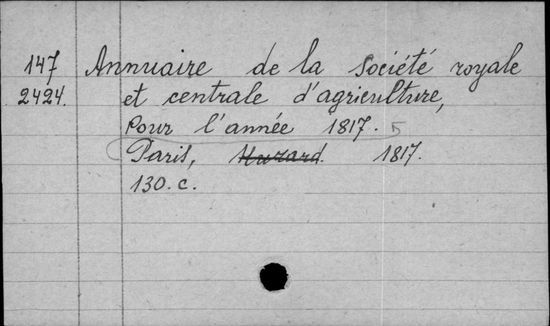 147 Annuaire de la Société royale
2424. et centrale d'agriculture,
Pour l'année 1817.
Paris, Huzard. 1817.
130. c.